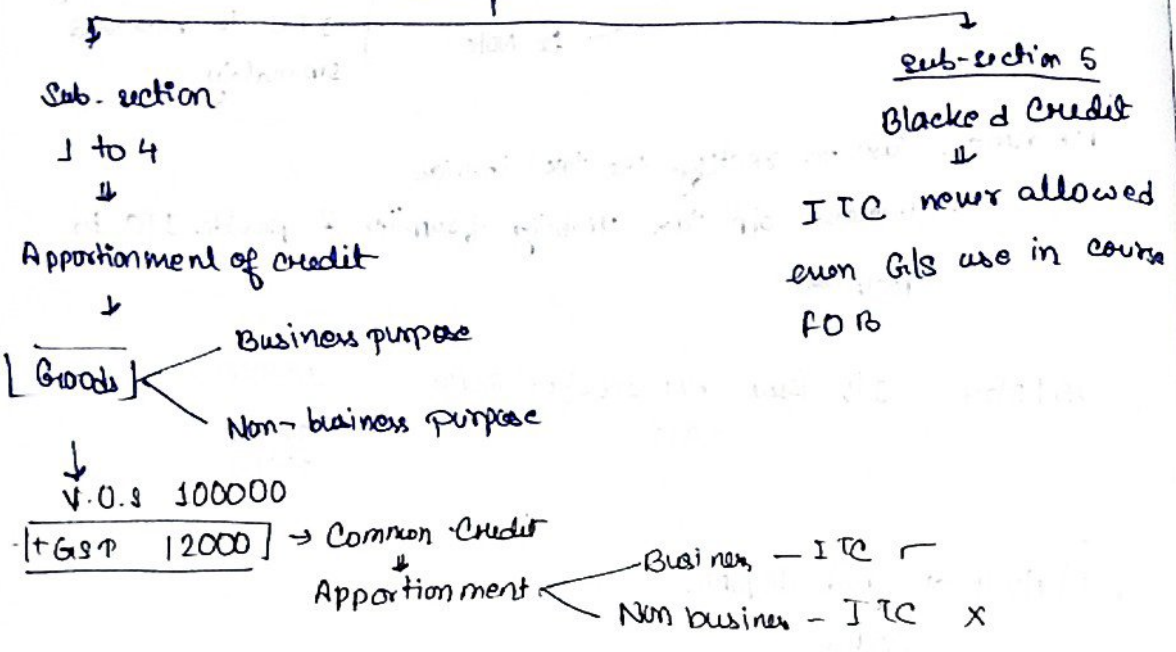 Sub-section
1 to 4
⇓
Apportionment of credit
↓
[Goods]
Business purpose
Non-business purpose
↓
V.O.S 100000
+ GST 12000 → Common Credit
⇓
Apportionment
Business - ITC ✓
Non business - ITC X
Sub-section 5
Blocked Credit
⇓
ITC never allowed
even G/S use in course
FOB